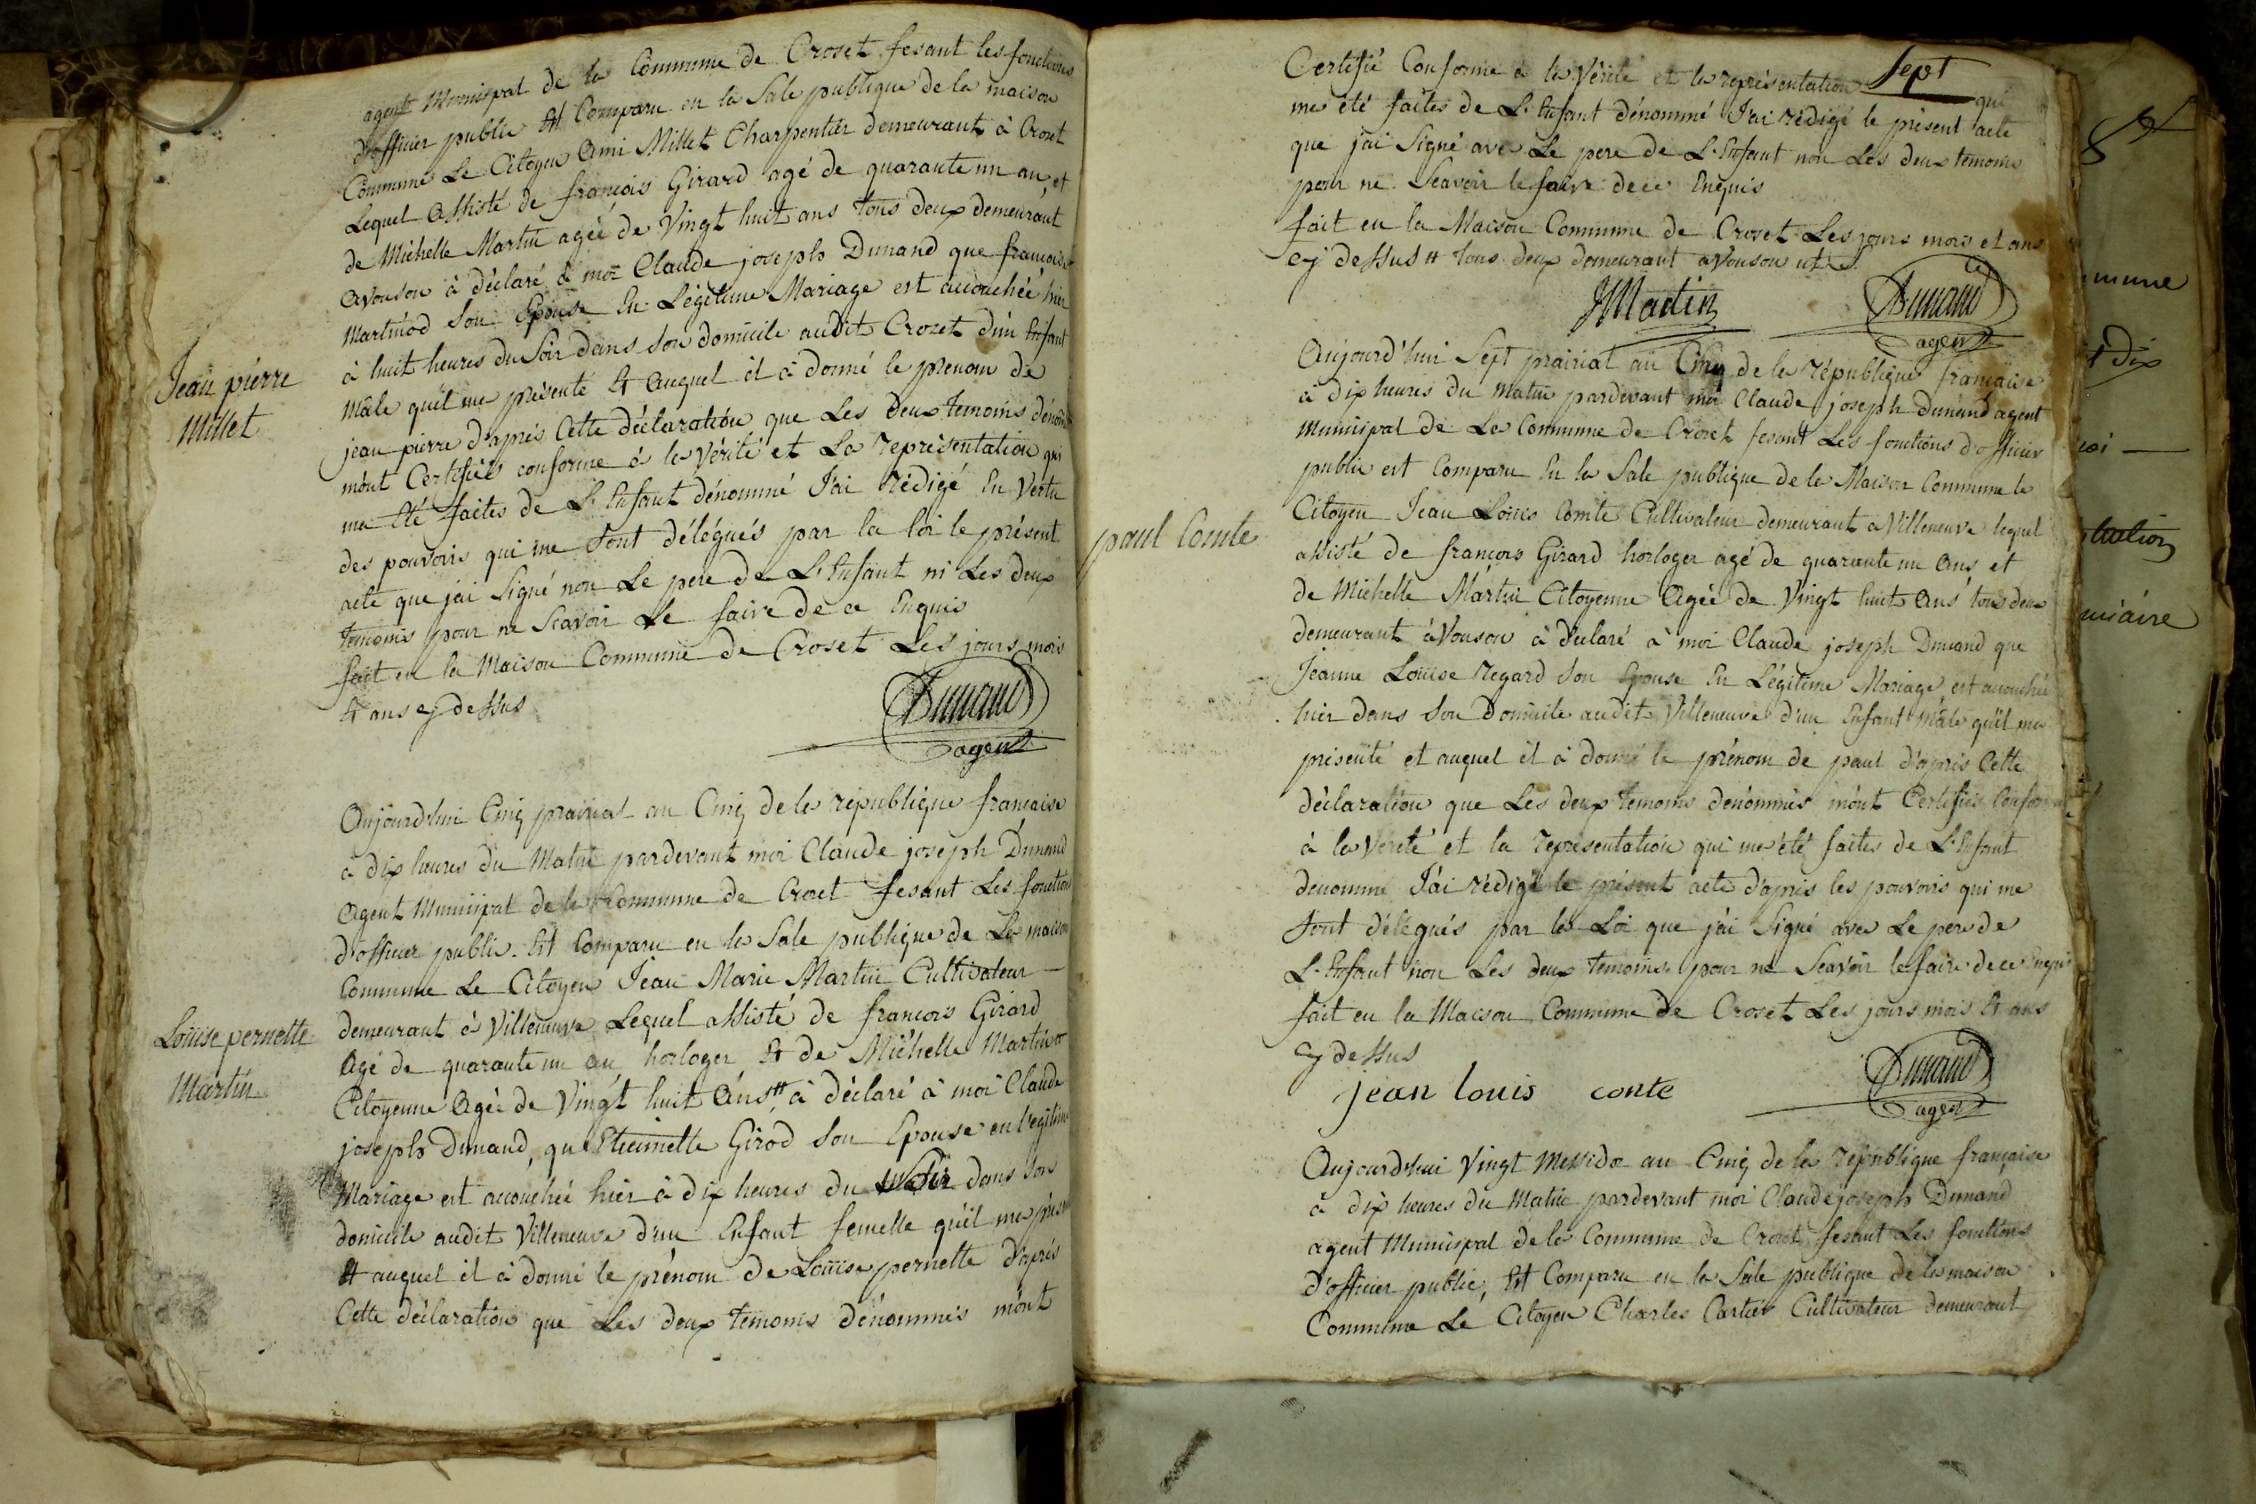 agent Municipal de la Commune de Croset fesant les fonctions
d'officier public Et Comparu en la Sale publique de la maison
Commune Le Citoyen Ami Millet Charpentier demeurant à Crozet
Lequel assisté de françois Girard agé de quarante un an, et
de Michelle Martin ageé de Vingt huit ans tous deux demeurant
avouson à déclaré à moi Claude joseph Dunand que francoise
Martinod son Epouse En Légitime Mariage est acouchée hier
à huit heures du Soir dans son domicile audit Crozet d'un Enfant
Mâle qu'il me présenté Et auquel il à donné le prénom de
Jean pierre
Millet
jean pierre d'aprés Cette déclaration que Les deux temoins dénom
m'ont Certifiés conforme à la Vérité et La représentation qui
ma été faites de L'Enfant dénommé J'ai rédigé En Vertu
des pouvoirs qui me sont délégués par la loi le présent
acte que j'ai Signé non Le pere de L'Enfant ni Les deux
temoins pour ne Scavoir Le faire de ce Enquis
fait en la Maison Commune de Croset Les jours mois
Et ans cy dessus
Dunand
agent
Aujourd'hui Cinq prairial an Cinq de la république francaise
à dix heures du Matin pardevant moi Claude joseph Dunand
Agent Municipal de la Commune de Crozet fesant Les fonctions
d'officier public. Est Comparu en la Sale publique de La maison
Commune Le Citoyen Jean Marie Martin Cultivateur
demeurant à Villeneuve Lequel assisté de francois Girard
Louise pernette
Martin
Agé de quarante un an horloger Et de Michelle Martin
Citoyenne Ageé de Vingt huit Ans # à déclaré à moi Claude
joseph Dunand, qu'Etiennette Girod son Epouse en Legitime
Mariage est acouchée hier à dix heures du Soir dans son
domicile audit Villeneuve d'un Enfant femelle qu'il me
Et auquel il à donné le prénom de Louise pernette d'aprés
Cette déclaration que Les deux temoins dénommés m'ont
Sept
Certifié Conforme à la Vérité et la représentation qui
me été faites de L'Enfant dénommé J'ai rédigé le présent acte
que j'ai Signé avec Le pere de L'Enfant non Les deux temoins
pour ne Scavoir le faire de ce Enquis
fait en la Maison Commune de Croset Les jours mois et ans
cy dessus # tous deux demeurant avouson
JMartin
Dunand
agent
Aujourd'hui Sept prairial an Cinq de la république française
à dix heures du Matin pardevant moi Claude joseph Dunand agent
Municipal de La Commune de Crozet fesant Les fonctions d'officier
public est Comparu En la Sale publique de la Maison Commune le
paul Comte
Citoyen Jean Louis Comte Cultivateur demeurant à Villeneuve lequel
assisté de françois Girard horloger agé de quarante un Ans et
de Michelle Martin Citoyenne Ageé de Vingt huit Ans tous deux
demeurant àVouson à déclaré à moi Claude joseph Dunand que
Jeanne Louise regard son Epouse En Légitime Mariage est acouchée
hier dans son Domicile audit Villeneuve d'un Enfant Mâle qu'il me
présenté et auquel il à donné le prénom de paul d'aprés Cette
déclaration que Les deux temoins dénommés m'ont Certifiés Conforme
à la Verité et la représentation qui me été faites de L'Enfant
denommé J'ai rédigé le présent acte d'aprés les pouvoirs qui me
sont délégués par la Loi que j'ai Signé avec Le pere de
L'Enfant non Les deux temoins pour ne Scavoir le faire de ce Enquis
fait en la Maison Commune de Croset Les jours mois Et ans
cy dessus
jean louis conte
Dunand
agent
Aujourd'hui Vingt Messidor an Cinq de la république française
à dix heures du Matin pardevant moi Claude joseph Dunand
agent Municipal de la Commune de Crozet fesant Les fonctions
d'officier public, Est Comparu en la Sale publique de la maison
Commune Le Citoyen Charles Cartier Cultivateur demeurant
mmune
dix